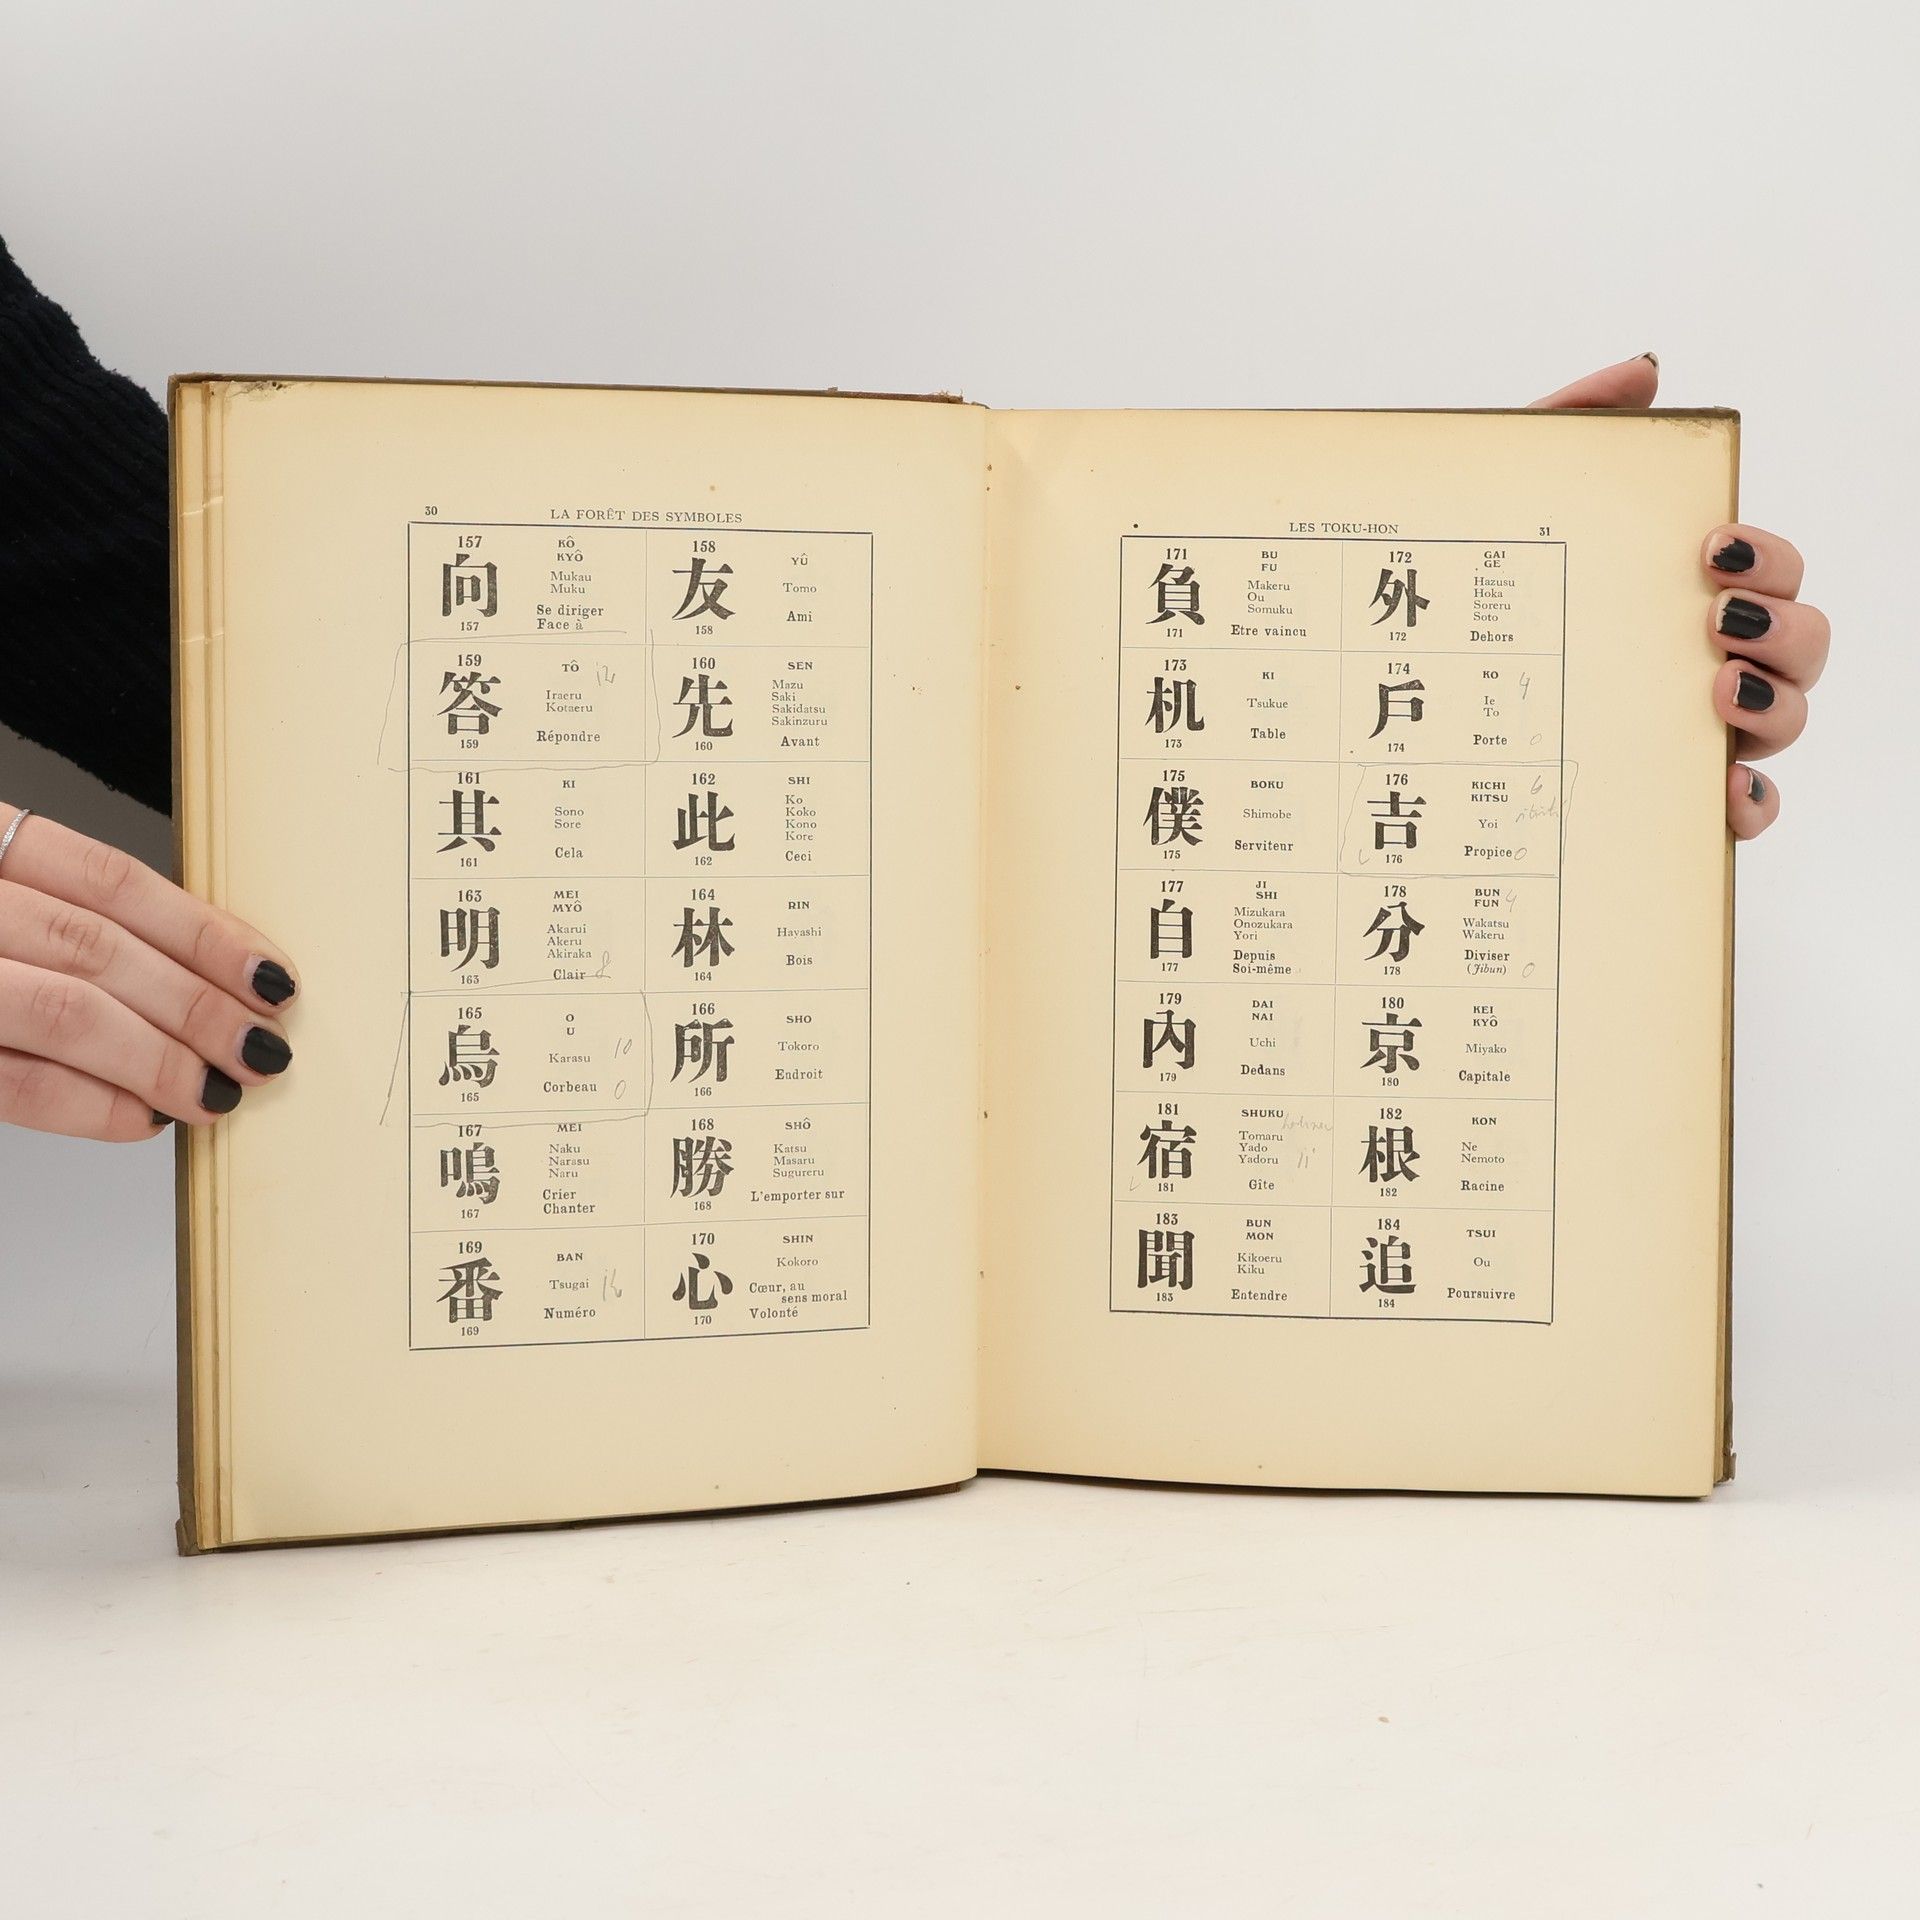 30
LA FORÊT DES SYMBOLES
157
向
157
KÔ
KYÔ
Mukau
Muku
Se diriger
Face à
158
友
158
YÛ
Tomo
Ami
159
答
159
TÔ
Iraeru
Kotaeru
Répondre
160
先
160
SEN
Mazu
Saki
Sakidatsu
Sakinzuru
Avant
161
其
161
KI
Sono
Sore
Cela
162
此
162
SHI
Ko
Koko
Kono
Kore
Ceci
163
明
163
MEI
MYÔ
Akarui
Akeru
Akiraka
Clair
8
164
林
164
RIN
Hayashi
Bois
165
烏
165
O
U
Karasu
10
Corbeau
0
166
所
166
SHO
Tokoro
Endroit
167
鳴
167
MEI
Naku
Narasu
Naru
Crier
Chanter
168
勝
168
SHÔ
Katsu
Masaru
Sugureru
L'emporter sur
169
番
169
BAN
Tsugai
Numéro
170
心
170
SHIN
Kokoro
Cœur, au
sens moral
Volonté
LES TOKU-HON
31
171
負
171
BU
FU
Makeru
Ou
Somuku
Etre vaincu
172
外
172
GAI
GE
Hazusu
Hoka
Soreru
Soto
Dehors
173
机
173
KI
Tsukue
Table
174
戶
174
KO
4
Ie
To
Porte
0
175
僕
175
BOKU
Shimobe
Serviteur
176
吉
176
KICHI
KITSU
6
Yoi
Propice
0
177
自
177
JI
SHI
Mizukara
Onozukara
Yori
Depuis
Soi-même
178
分
178
BUN
FUN
4
Wakatsu
Wakeru
Diviser
(Jibun)
0
179
內
179
DAI
NAI
Uchi
Dedans
180
京
180
KEI
KYÔ
Miyako
Capitale
181
宿
181
SHUKU
Tomaru
Yado
Yadoru
11
Gîte
182
根
182
KON
Ne
Nemoto
Racine
183
聞
183
BUN
MON
Kikoeru
Kiku
Entendre
184
追
184
TSUI
Ou
Poursuivre